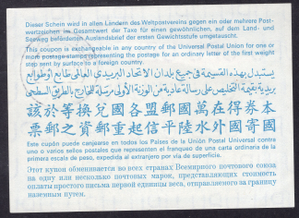 Dieser Schein wird in allen Ländern des Weltpostvereins gegen ein oder mehrere Post-
wertzeichen im Gesamtwert der Taxe für einen gewöhnlichen, auf dem Land- und
Seeweg beförderten Auslandsbrief der ersten Gewichtsstufe umgetauscht.
This coupon is exchangeable in any country of the Universal Postal Union for one or
more postage stamps representing the postage for an ordinary letter of the first weight
step sent by surface to a foreign country.
يستبدل بهذه القسيمة في جميع بلدان الاتحاد البريدي العالمي طابع أو طوابع
بريدية بقيمة التخليص على رسالة عادية من وحدة الوزن الأولى مرسلة للخارج بالطريق السطحي
該換等兌國盟各郵國萬在得券本
票郵之資郵重起信平陸水外國寄
Este cupón puede canjearse en todos los Países de la Unión Postal Universal contra
uno o varios sellos postales que representen el franqueo de una carta ordinaria de la
primera escala de peso, expedida al extranjero por vía de superficie.
Этот купон обменивается во всех странах Всемирного почтового союза
на одну или несколько почтовых марок, представляющих стоимость
оплаты простого письма первой единицы веса, отправляемого за границу
наземным путем.